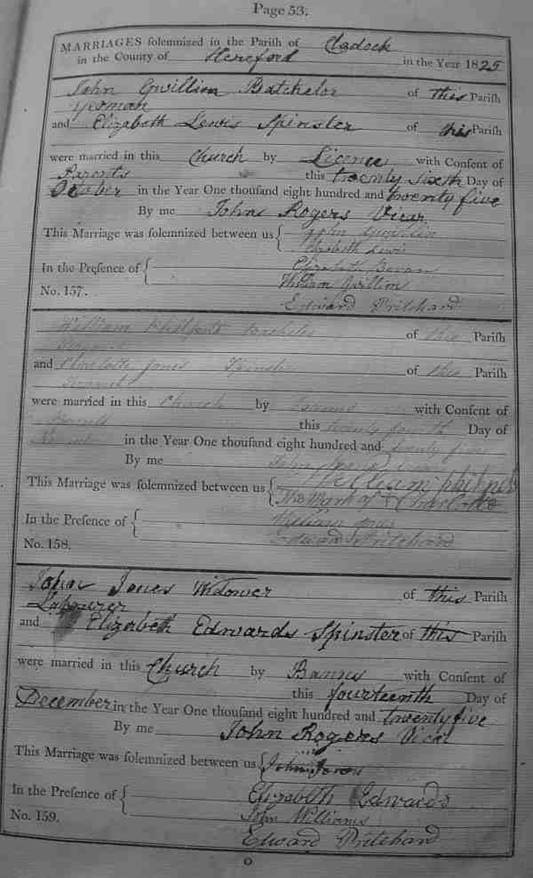 Page 53.
MARRIAGES solemnized in the Parish of Cladock
in the County of Hereford in the Year 1825
John Gwillim Batchelor of this Parish
yeoman
and Elizabeth Lewis Spinster of this Parish
were married in this Church by Licence with Consent of
Parents this twenty sixth Day of
October in the Year One thousand eight hundred and twenty five
By me John Rogers Vicar
This Marriage was solemnized between us { John Gwillim
Elizabeth Lewis
In the Presence of { Elizabeth Bevan
William Gwillim
No. 157.
Edward Pritchard
William Batchelor of this Parish
and Charlotte Jones Spinster of this Parish
Servant
were married in this Church by Banns with Consent of
this twenty fourth Day of
November in the Year One thousand eight hundred and twenty five
By me John
This Marriage was solemnized between us { William
The Mark of + Charlotte
In the Presence of { William Jones
Edward Pritchard
No. 158.
John Jones Widower of this Parish
Labourer
and Elizabeth Edwards Spinster of this Parish
were married in this Church by Banns with Consent of
this fourteenth Day of
December in the Year One thousand eight hundred and twenty five
By me John Rogers Vicar
This Marriage was solemnized between us { John Jones
Elizabeth Edwards
In the Presence of { John Williams
No. 159.
Edward Pritchard
O